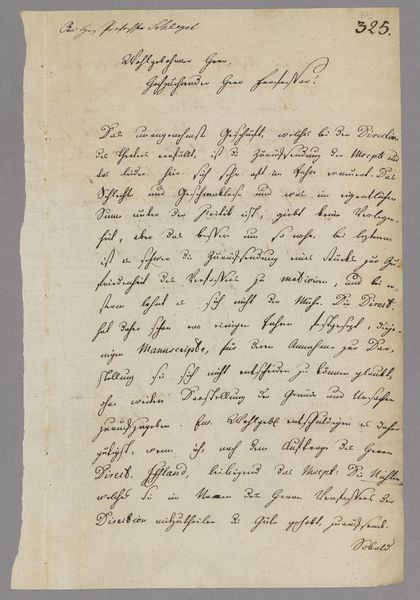 An Hrn Professor Schlegel
325.
Wohlgebohrner Herr,
Hochzuehrender Herr Professor!
Das unangenehmste Geschäft, welches bei der Direction
des Theaters vorfällt, ist die Zurücksendung der Mscpte und
das leider hier sich sehr oft im Jahre erneuert. Das
Schlechte und Geschmacklose und was im eigentlichen
Sinn unter der Kritik ist, giebt keine Verlegen-
heit, aber das bessere um so mehr. bei lezterem
ist es schwer die Zurücksendung eines Stücks zur Zu-
friedenheit des Verfassers zu motiviren, und bei er-
sterm lohnt es sich nicht der Mühe. Die Direct.
hat daher schon vor einigen Jahren festgesezt, dieje-
nigen Manuscripte, für deren Annahme zur Dar-
stellung sie sich nicht entscheiden zu können glaubt,
ohne weitere Darstellung der Gründe und Ursachen
zurückzugeben. Ew. Wohlgeb. entschuldigen es daher
gütigst, wenn ich, nach dem Auftrage des Herrn
Direct. Iffland, beiliegend das Mscpt: Die
welches Sie im Namen des Herrn Verfassers der
Direction mitzutheilen die Güte gehabt, zurücksende.
Sobald